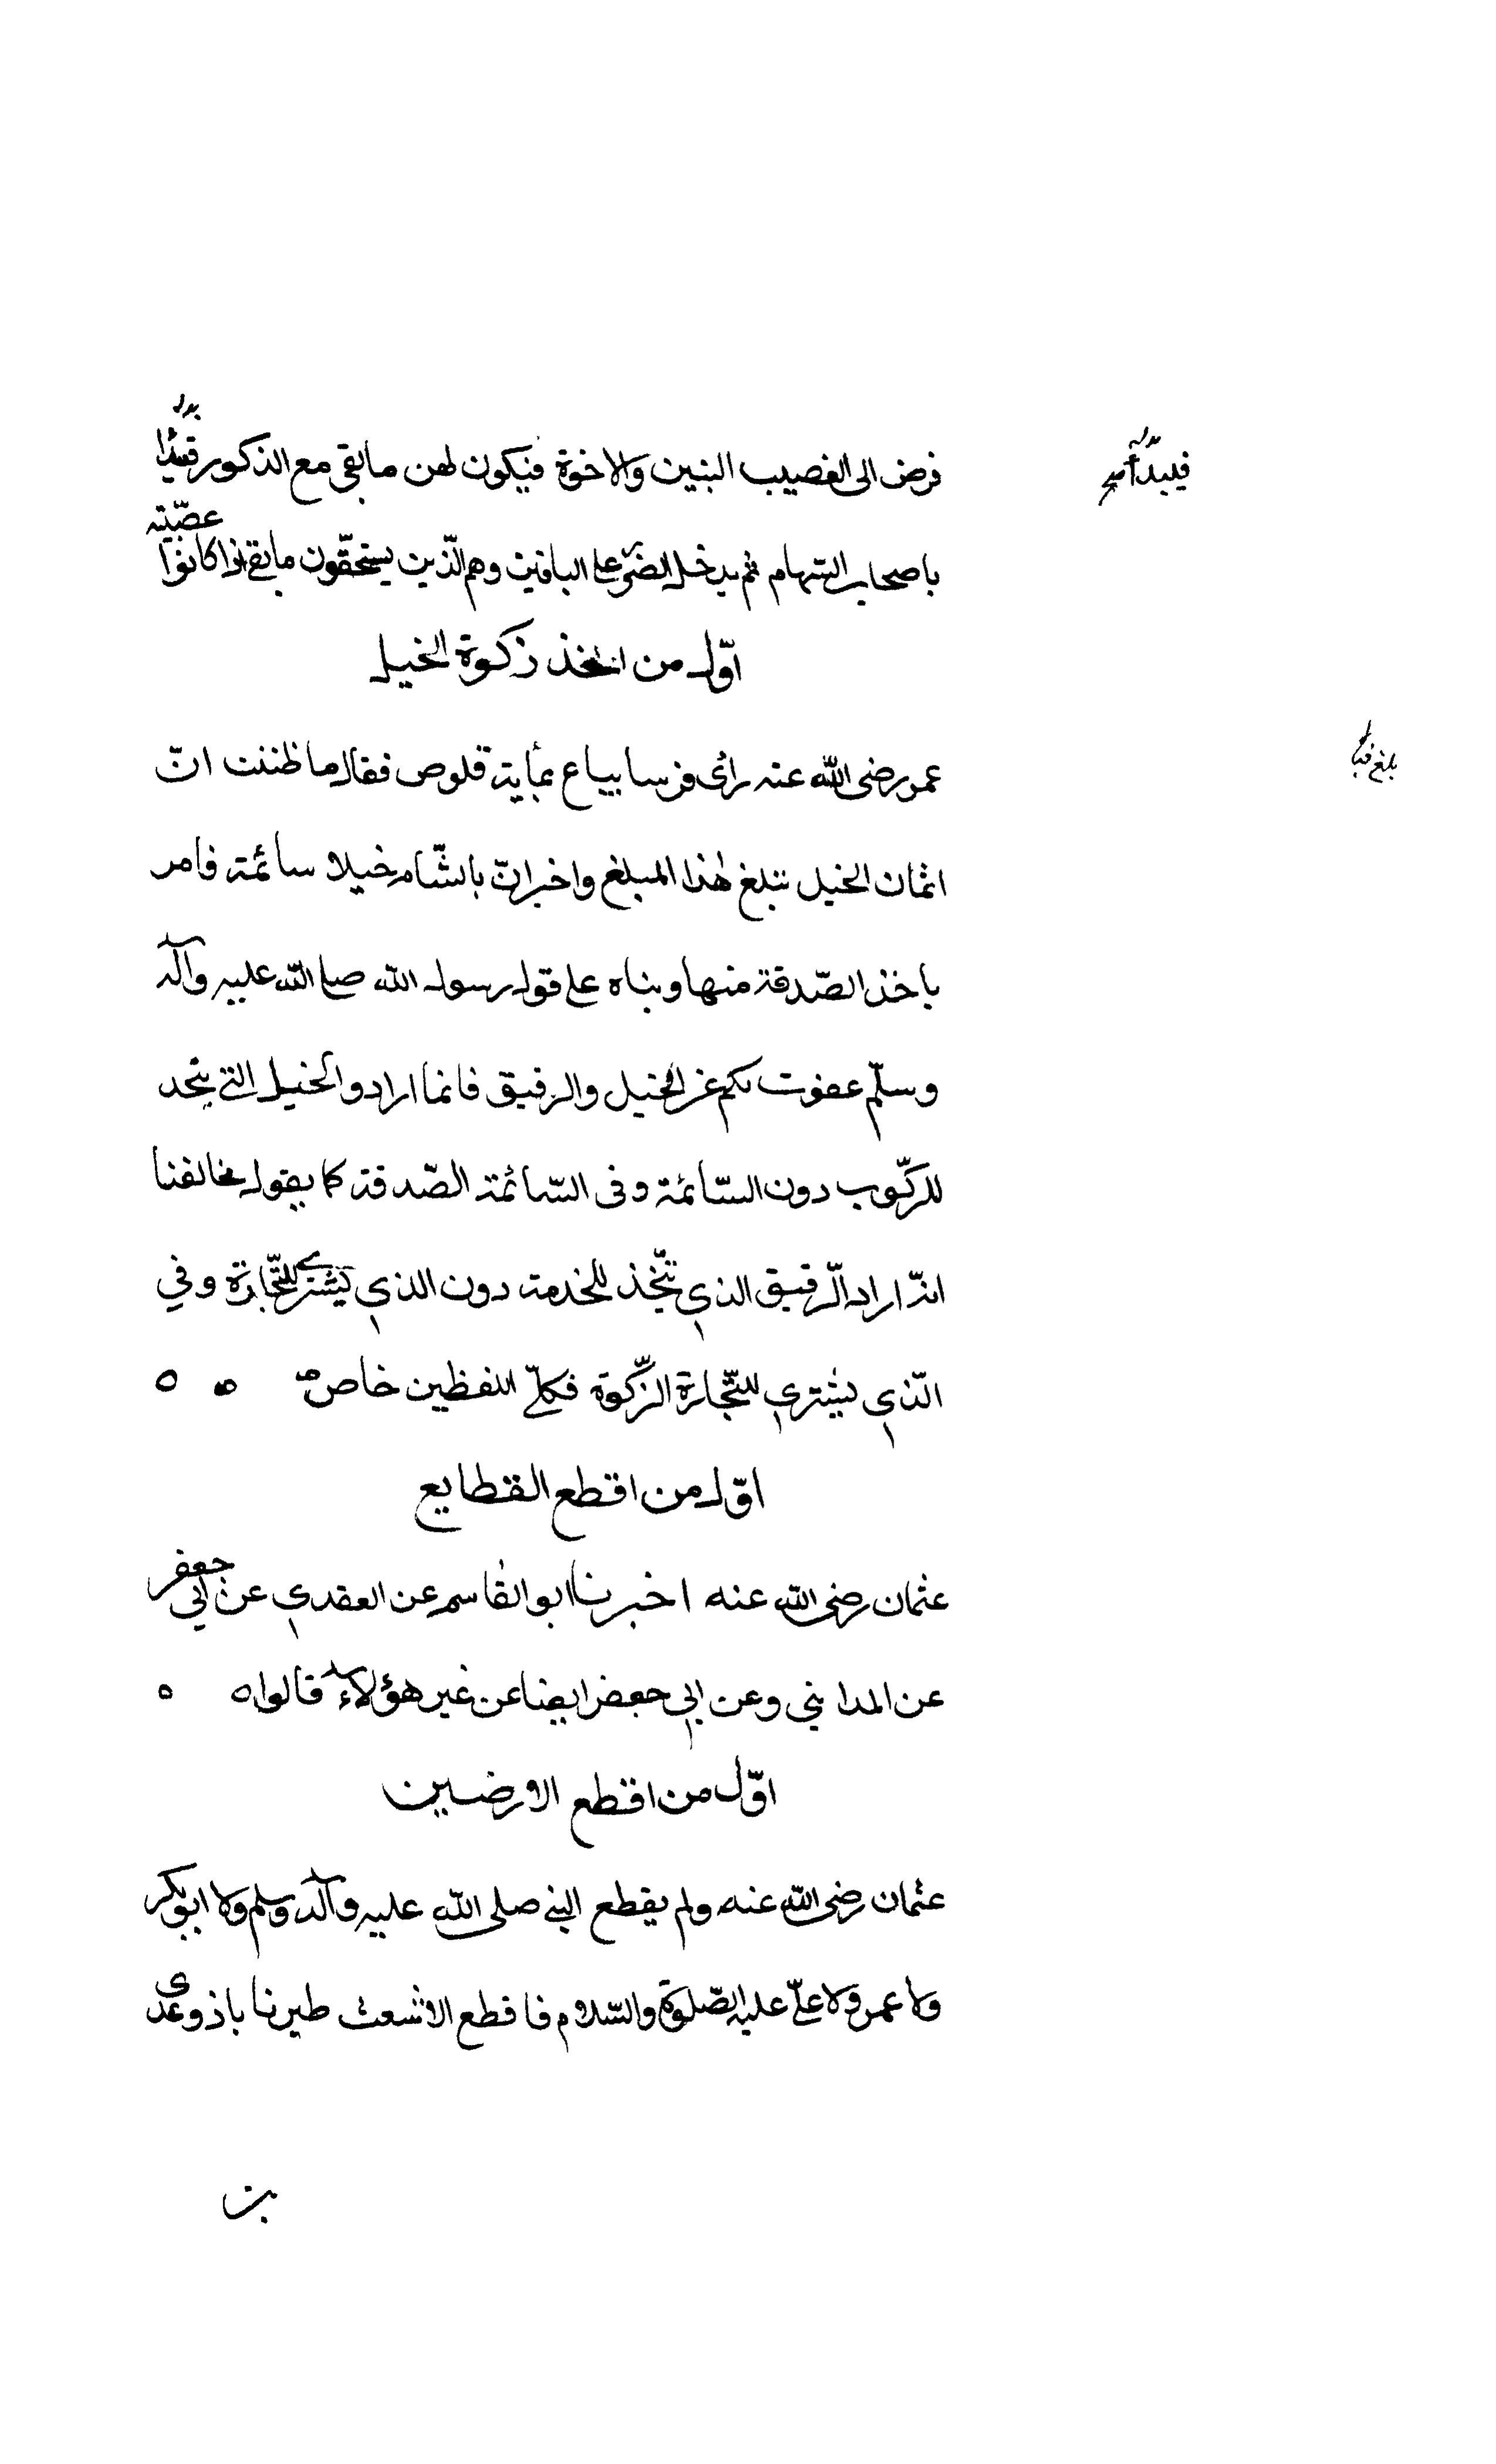 فرض الى الغصيب البنين والاخوة فيكون لهن ما بقى مع الذكور فيبدا
باصحاب السّهام ثم يدخل الضرّ على الباقين وهم الّذين يستحقّون ما بقى اذا كانوا عصبته
اوّل من اخذ زكوة الخيل
عمر رضى اللّه عنه رأى فرسا يباع بمأية قلوص فقال ما ظننت انّ
اثمان الخيل تبلغ هٰذا المبلغ واخبر انّ بالشّام خيلا سائمة فامر
باخذ الصّدقة منها وبناه على قول رسول اللّه صلى اللّه عليه وآله
وسلّم عفوت لكم عن الخيل والرقيق فانما اراد والخيل التى يتخد
للركّوب دون السّائمة وفى السّائمة الصّدقة كما يقول مخالفنا
انّه اراد الّرقيق الذي تتّخذ للخدمة دون الذي يشترى للتّجارة وفي
الّذي يشتري للتّجارة الزكّوة فكلّ اللفظين خاص ه ه
اوّل من اقطع القطايع
عثمان رضى اللّه عنه اخبرنا ابو القاسم عن العقدي عن ابي جعفر
عن المدايني وعن ابي جعفر ايضا عن غير هؤلاء قالوا ه ه
اوّل من اقطع الارضين
عثمان رضى اللّه عنه ولم يقطع النبى صلى اللّه عليه وآله وسلم ولا ابو بكر
ولا عمر ولا علىّ عليه الصّلوة والسّلام فاقطع الاشعث طيرناباذ وعدى
بن
فليبدأ
بلغ قبا